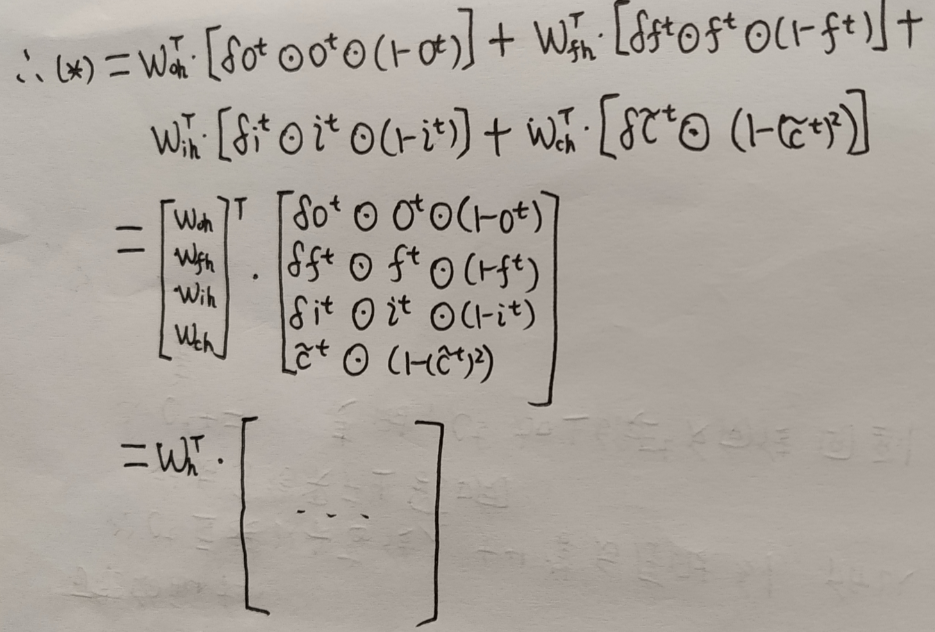 ∴ (*) = W_{oh}^T · [δo^t ⊙ o^t ⊙ (1-o^t)] + W_{fh}^T · [δf^t ⊙ f^t ⊙ (1-f^t)] +
W_{ih}^T · [δi^t ⊙ i^t ⊙ (1-i^t)] + W_{ch}^T · [δc̃^t ⊙ (1-(c̃^t)^2)]
= [W_{oh} W_{fh} W_{ih} W_{ch}]^T · [δo^t ⊙ o^t ⊙ (1-o^t)
δf^t ⊙ f^t ⊙ (1-f^t)
δi^t ⊙ i^t ⊙ (1-i^t)
c̃^t ⊙ (1-(c̃^t)^2)]
= W_h^T · [ ... ]